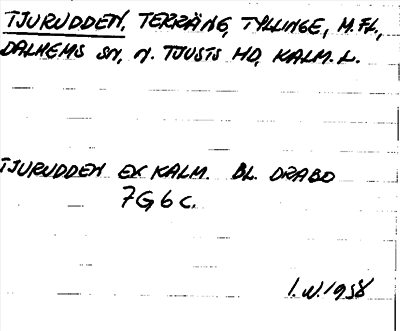 TJURUDDEN, TERRÄNG, TYLLINGE, M.FL.,
DALHEMS SN, N. TJUSTS HD, KALM. L.
TJURUDDEN EK KALM. BL. DRABO
7G6c.
I.W. 1958